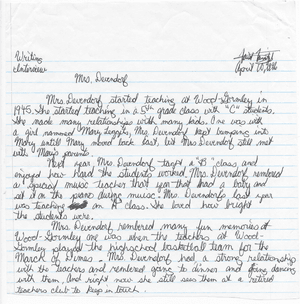 Writing
Interview
April 10,
Mrs. Devendorf
Mrs. Devendorf started teaching at Wood Gormley in
1945. She started teaching in a 5th grade class with "C" students.
She made many relationships with many kids. One was with
a girl nammed Mary Leggity, Mrs. Devendorf kept bumping into
Mary until Mary moved back East, but Mrs. Devendorf still met
with Mary's parents.
Next year Mrs. Devendorf taught a "B" class and
enjoyed how hard the students worked. Mrs. Devendorf rembered
a special music teacher that year that had a baby and
set it on the piano during music. Mrs. Devendorf's last year
was teaching an A class. She loved how bright
the students were.
Mrs. Devendorf rembered many fun memories at
Wood-Gormley as when the teachers at Wood-
Gormley played the highschool basketball team for the
March of Dimes. Mrs. Devendorf had a strong relationship
with the teachers and rembered going to dinners and going dancing
with them. And right now she still sees them at a retired
teachers club to keep in touch.